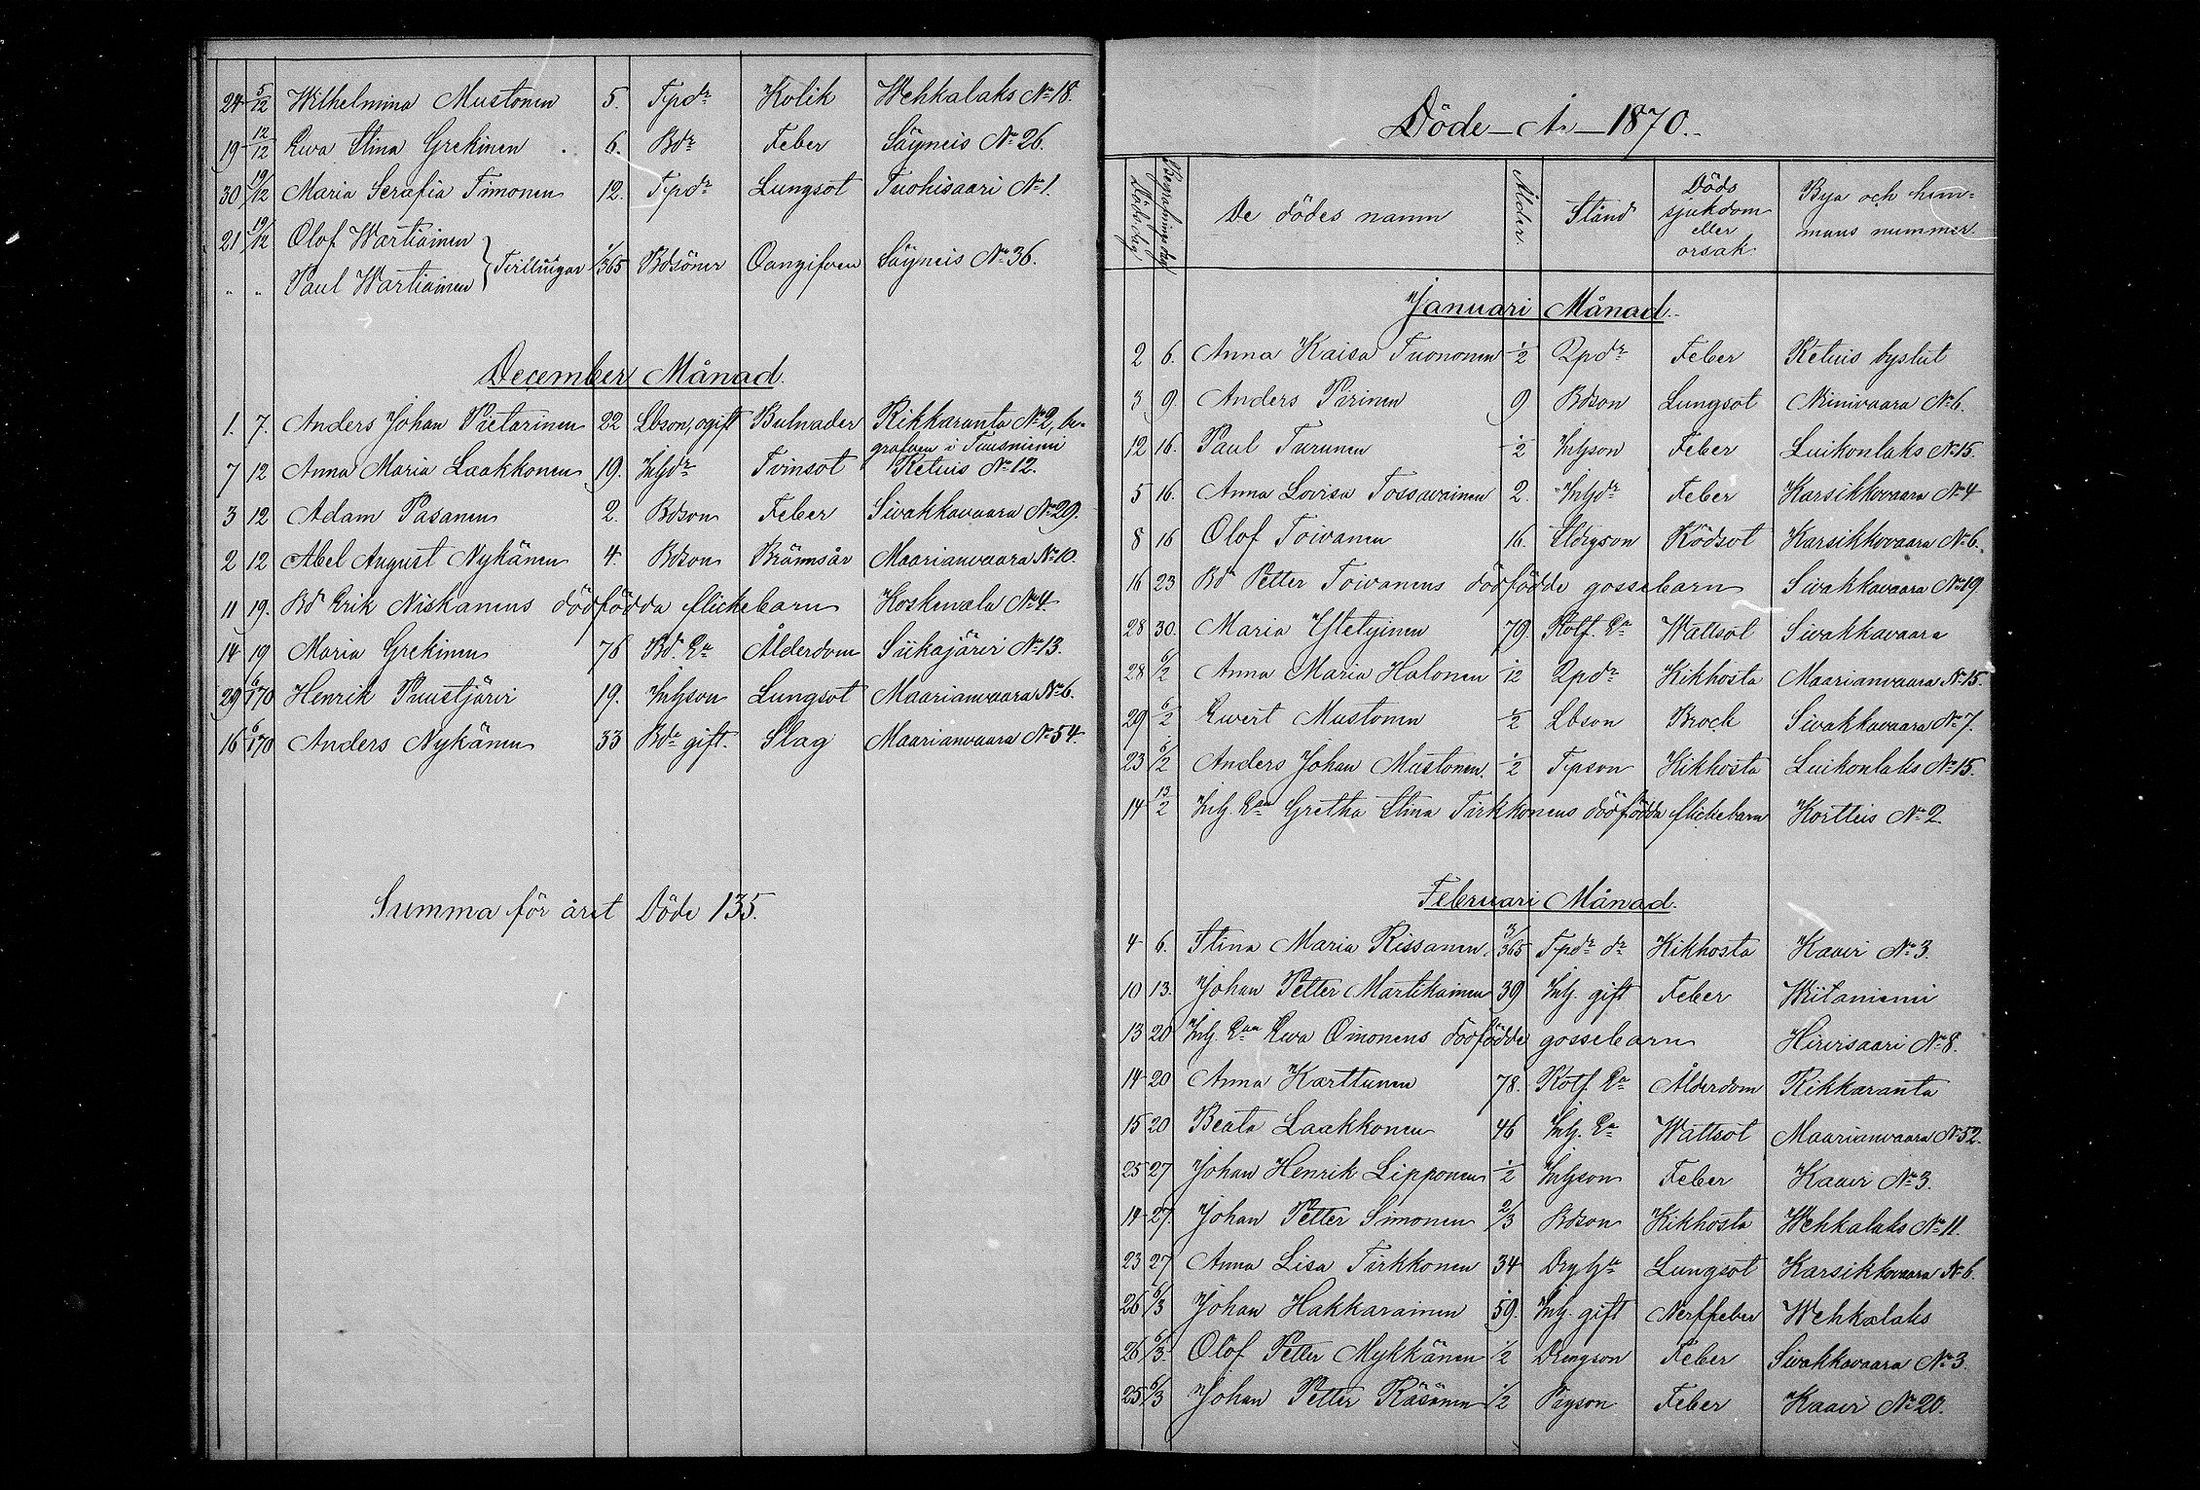 24 5/12 Wilhelmina Mustonen 5. Tpdr Kolik Wehkalaks No 18.
19 12/12 Ewa Stina Grekinen 6. Bdr Feber Säyneis No 26.
30 19/12 Maria Serafia Timonen 12. Tpdr Lungsot Tuohisaari No 1.
21 19/12 Olof Wartiainen
Tvillingar 1/365 Bdsöner Oangifven Säyneis No 36.
" " Paul Wartiainen
December Månad.
1. 7. Anders Johan Pietarinen 22 Lbson, ogift Bulnader Rikkaranta No 2, be-
grafven i Tuusniemi
7 12 Anna Maria Laakkonen 19. Inhdr Tvinsot Ketuis No 12.
3 12 Adam Pasanen 2. Bdson Feber Sivakkavaara No 29.
2 12 Abel August Nykänen 4. Bdson Brännsår Maarianvaara No 10.
11 19. Bd Erik Niskanens dödfödda flickebarn Koskenala No 4
14 19 Maria Grekinen 76 Bd. Ea Ålderdom Siikajärvi No 13.
29 6/1 70 Henrik Puustjärvi 19. Inhson Lungsot Maarianvaara No 6.
16 6/1 70 Anders Nykänen 33 Bdr gift. Slag Maarianvaara No 54.
Summa för året Döde 135.
Döde År 1870.
Dödsdag Begrafningsdag De dödes namn Ålder. Stånd Döds sjukdom eller orsak. Bya och hem-
mans nummer.
Januari Månad.
2 6. Anna Kaisa Tuononen 1/2 Qpdr Feber Ketuis byslut
3 9. Anders Parinen 9 Bdson Lungsot Niinivaara No 6.
12 16. Paul Turunen 1/2 Inhson Feber Luikonlaks No 15.
5 16. Anna Lovisa Tossavainen 2. Inhdr Feber Karsikkovaara No 4
8 16 Olof Toivanen 16. Rödsot Karsikkovaara No 6.
16 23 Bd Petter Toivanens dödfödde gossebarn Sivakkavaara No 19
28 30. Maria 79. Rotf. Ea Wattsot Sivakkavaara
28 6/2 Anna Maria Halonen 1/12 Qpdr Kikhosta Maarianvaara No 15.
29 6/2 Evert Mustonen 1/2 Lbson Brock Sivakkavaara No 7.
23 6/2 Anders Johan Mustonen. 1/2 Tpson Kikhosta Luikonlaks No 15.
14 13/2 Inh. Ean Gretha Stina Tirkkonens dödfödda flickebarn Kortteis No 2.
Februari Månad.
4 6. Stina Maria Rissanen 3/365 Tpdr dr Kikhosta Kaavi No 3.
10 13. Johan Petter Martikainen 39 Inh. gift Feber Wiitaniemi
13 20 Inh. Ean Ewa Oinonens dödfödde gossebarn Hirvisaari No 8.
14 20 Anna Karttunen 78. Rotf. Ea Ålderdom Rikkaranta
15 20 Beata Laakkonen 46 Inh. Ea Wattsot Maarianvaara No 52.
25 27 Johan Henrik Lipponen 1/2 Inhson Feber Kaavi No 3.
14 27. Johan Petter Simonen 2/3 Bdson Kikhosta Wehkalaks No 11.
23 27 Anna Lisa Tirkkonen 34 Lungsot Karsikkovaara No 6.
26 6/3 Johan Hakkarainen 59. Inh. gift Nerffeber Wehkalaks
26 6/3. Olof Petter Mykkänen 1/2 Drengson Feber Sivakkavaara No 3.
25 6/3 Johan Petter Räsänen 1/2 Pigson Feber Kaavi No 20.